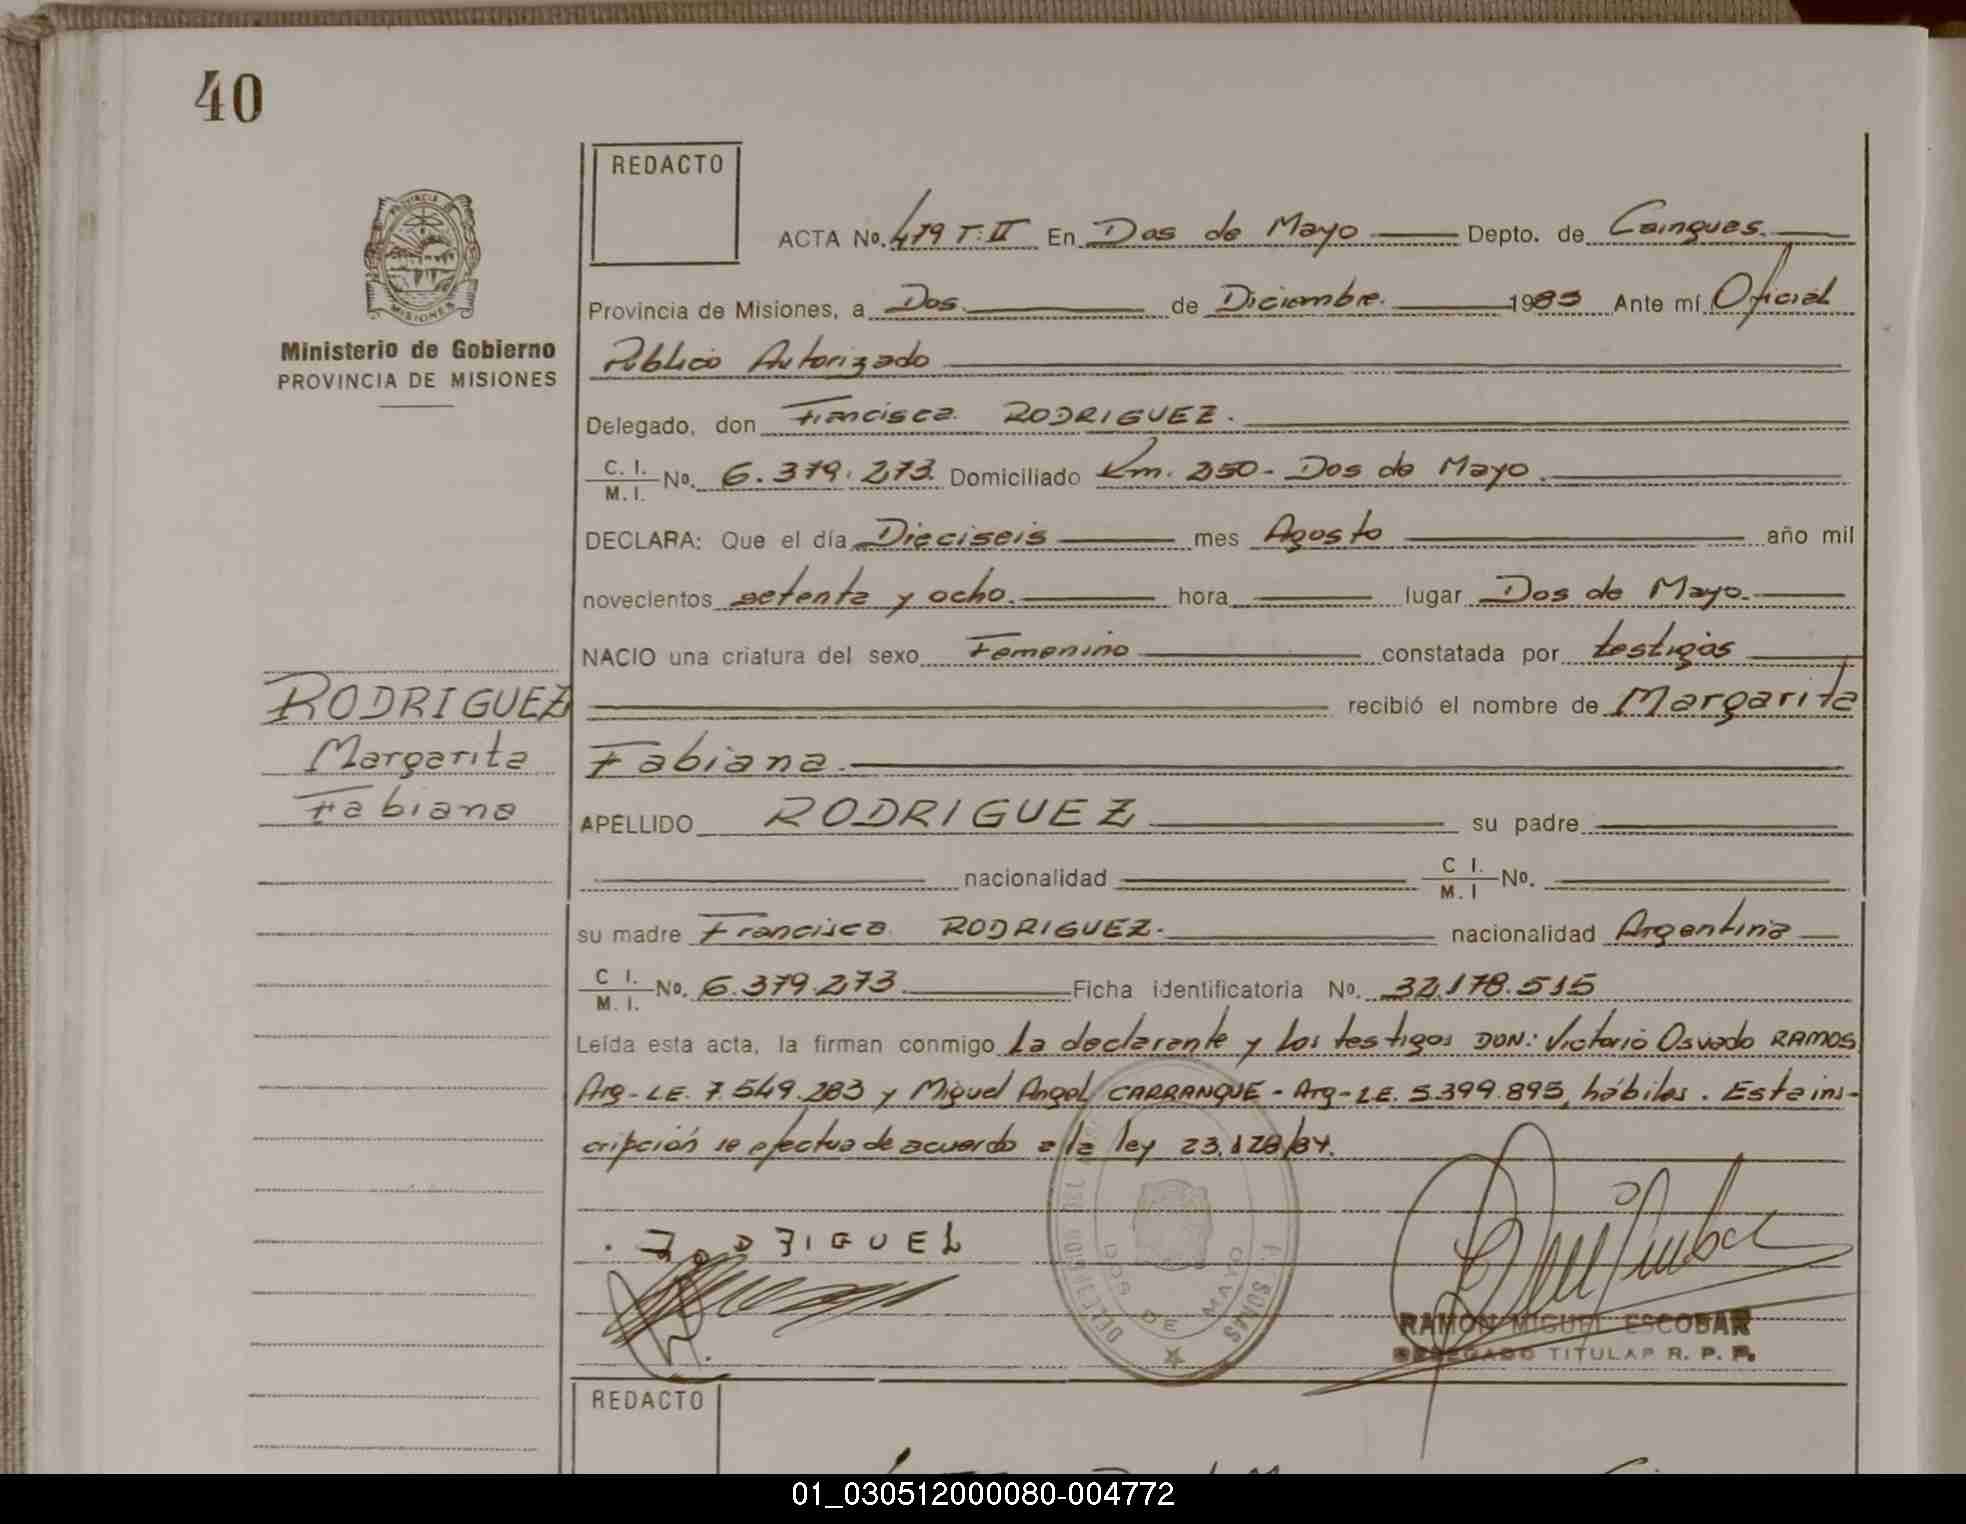 40
REDACTO
PROVINCIA DE
MISIONES
Ministerio de Gobierno
PROVINCIA DE MISIONES
ACTA No. 479 T: II En Dos de Mayo Depto. de Cainguas.
Provincia de Misiones, a Dos. de Diciembre. 1985 Ante mí Oficial
Público Autorizado
Delegado, don Francisca RODRIGUEZ.
C. I.
M. I. No. 6.379.273. Domiciliado Km. 250 - Dos de Mayo.
DECLARA: Que el día Dieciseis mes Agosto año mil
novecientos setenta y ocho. hora lugar Dos de Mayo.
NACIO una criatura del sexo Femenino constatada por testigos
recibió el nombre de Margarita
RODRIGUEZ
Margarita
Fabiana
Fabiana.
APELLIDO RODRIGUEZ su padre
nacionalidad C I. M. I No.
su madre Francisca RODRIGUEZ. nacionalidad Argentina
C I.
M. I. No. 6.379.273. Ficha identificatoria No. 32.178.515
Leída esta acta, la firman conmigo la declarante y los testigos DON: Victorio Osvado RAMOS
Arg- LE. 7.549.283 y Miguel Angel CARRANQUE - Arg- LE. 5.399.895, hábiles. Esta ins-
cripción se efectua de acuerdo a la ley 23.128/84.
DOS DE MAYO
RAMON MIGUEL ESCOBAR
DELEGADO TITULAR R. P. P.
REDACTO
01_030512000080-004772